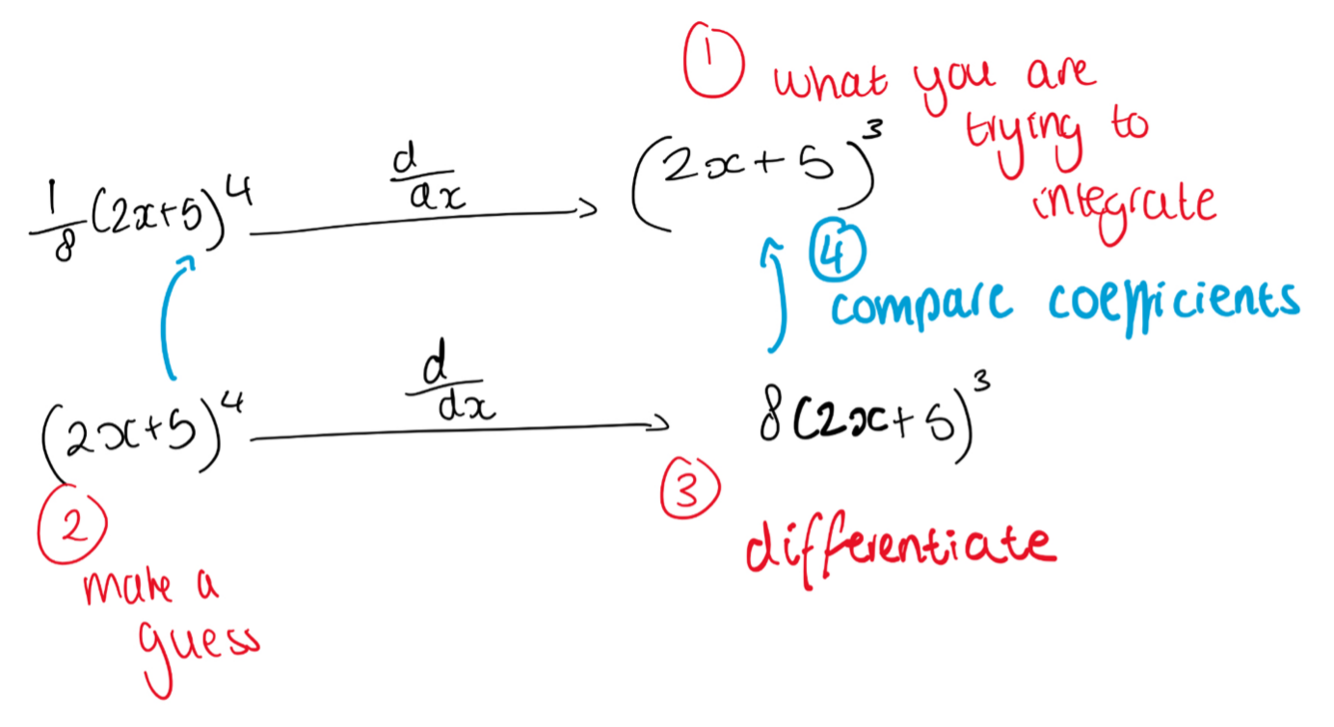 ① what you are
trying to
integrate
1/8 (2x+5)^4 d/dx (2x+5)^3
④
compare coefficients
(2x+5)^4 d/dx 8(2x+5)^3
② ③
make a differentiate
guess